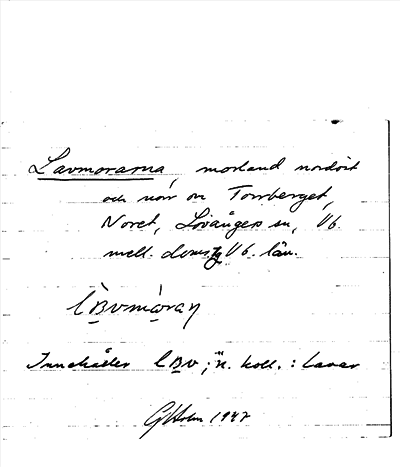 Lavmorarna, morland nordost
och norr om Torrberget,
Noret, Lövångers sn, Vb.
mell. Vb. län.
Innehåller n. koll.: lavar
GHolm 1947